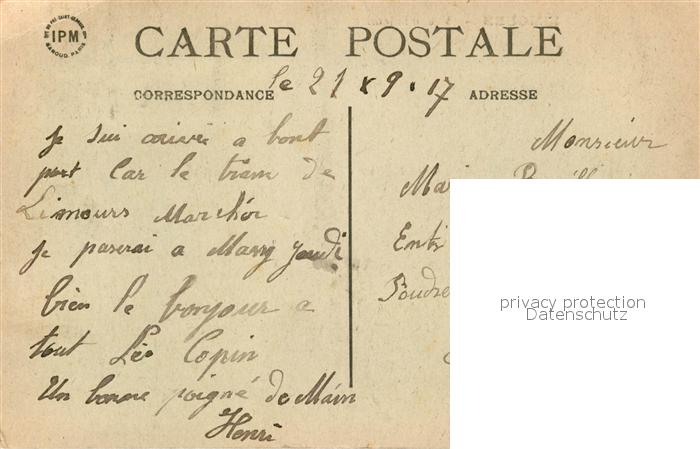 IPM
CARTE POSTALE
CORRESPONDANCE
ADRESSE
le 21 x 9 . 17
Je sui arrivé a bont
port Car le train de
Limours Marchér
Je paserai a Massy Jeudi
bien le bonjour a
tout Lés Copin
Un bonne poigné de Main
Henri
Monsieur
Entr
Poudre
privacy protection
Datenschutz